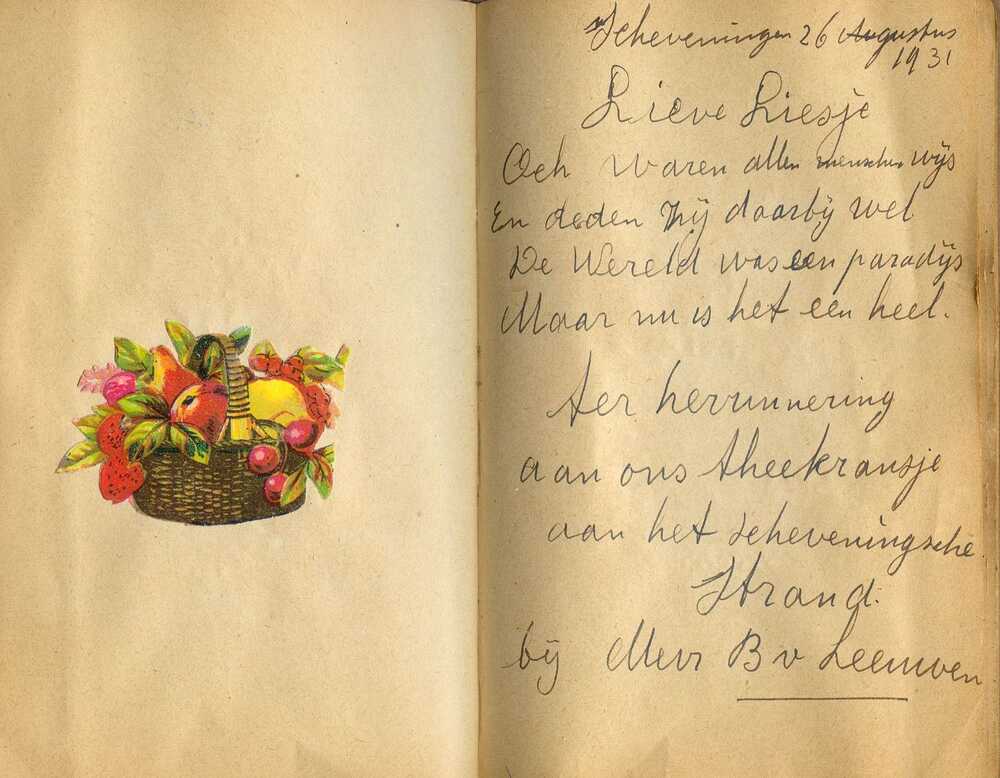 Scheveningen 26 Augustus
1931
Lieve Liesje
Och waren allen menschen wijs
En deden zij daarbij wel
De Wereld was een paradijs
Maar nu is het een heel.
Ter herrinnering
aan ons theekransje
aan het scheveningsche
Strand.
bij Mevr B v Leeuwen